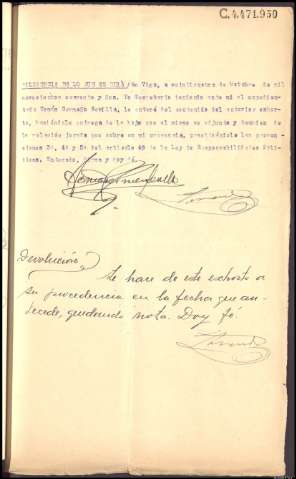 C.4.471.950
DILIGENCIA DE LO QUE SE HIZO/ En Vigo, a veintiquatro de Octubre de mil
novecientos cuarenta y dos. Yo Secretario teniendo ante mi al expedien-
tado Tomás González Sevilla, le enteré del contenido del anterior exhor-
to, haciéndole entrega de la hoja que al mismo se adjunta y además de
la relación jurada que sobre en mi presencia, practicándole las preven-
ciones 3ª, 4ª y 5ª del artículo 49 de la Ley de Responsabilidades Polí-
ticas. Enterado, firma y doy fé.
Devolución
Se hace de este exhorto a
su procedencia en la fecha que an-
tecede, quedando nota. Doy fé